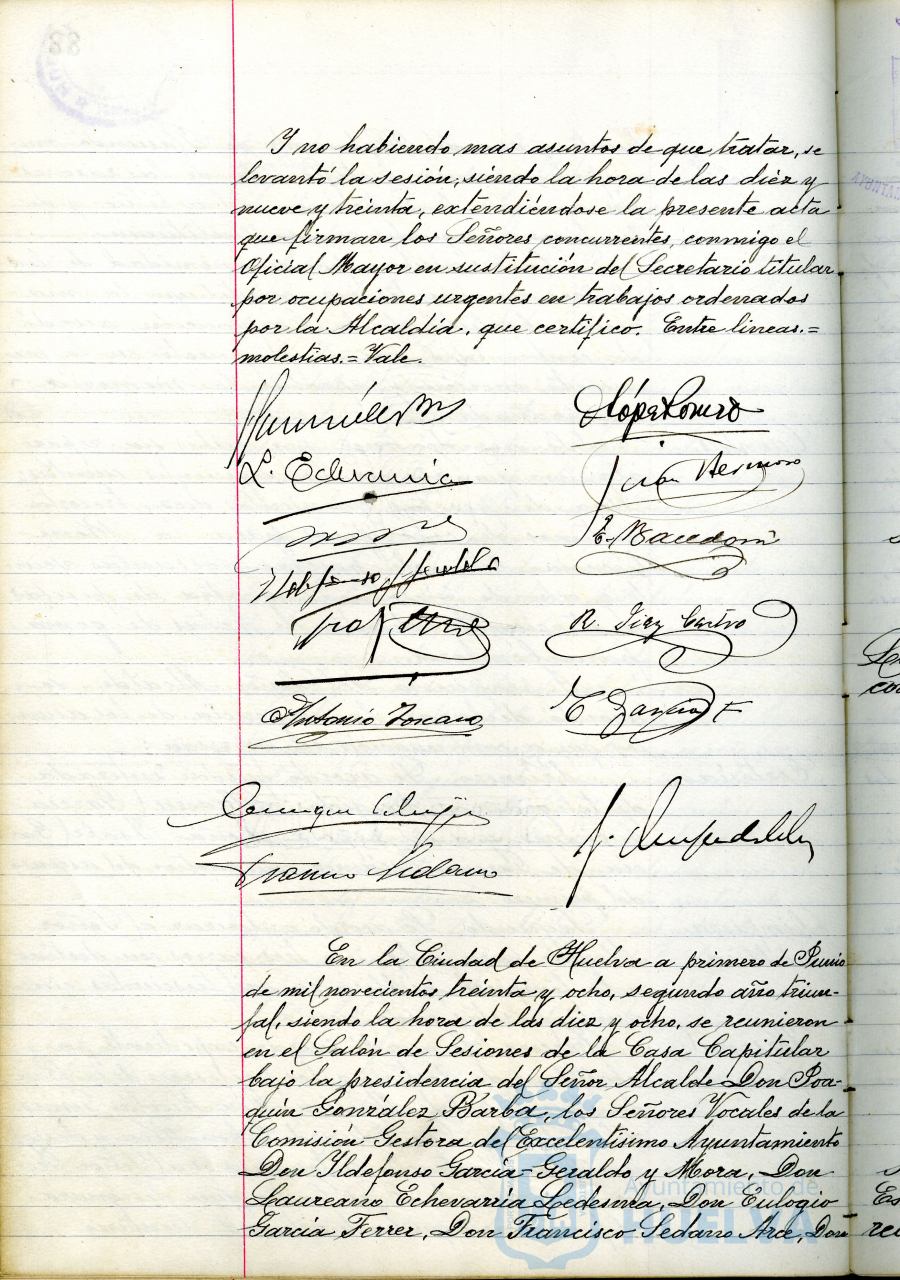 Y no habiendo mas asuntos de que tratar, se
levantó la sesión, siendo la hora de las diez y
nueve y treinta, extendiéndose la presente acta
que firman los Señores concurrentes, conmigo el
Oficial Mayor en sustitución del Secretario titular
por ocupaciones urgentes en trabajos ordenados
por la Alcaldía, que certifico. Entre lineas.=
molestias.= Vale.
L. Echevarria
Antonio Toscano
R. Diaz Castro
En la Ciudad de Huelva a primero de Junio
de mil novecientos treinta y ocho, segundo año triun-
fal, siendo la hora de las diez y ocho, se reunieron
en el Salón de Sesiones de la Casa Capitular
bajo la presidencia del Señor Alcalde Don Joa-
quín González Barba, los Señores Vocales de la
Comisión Gestora del Excelentisimo Ayuntamiento
Don Ildefonso García-Geraldo y Mora, Don
Laureano Echevarría Ledesma, Don Eulogio
García Ferrer, Don Francisco Sedano Arce, Don
Ayuntamiento de
HUELVA